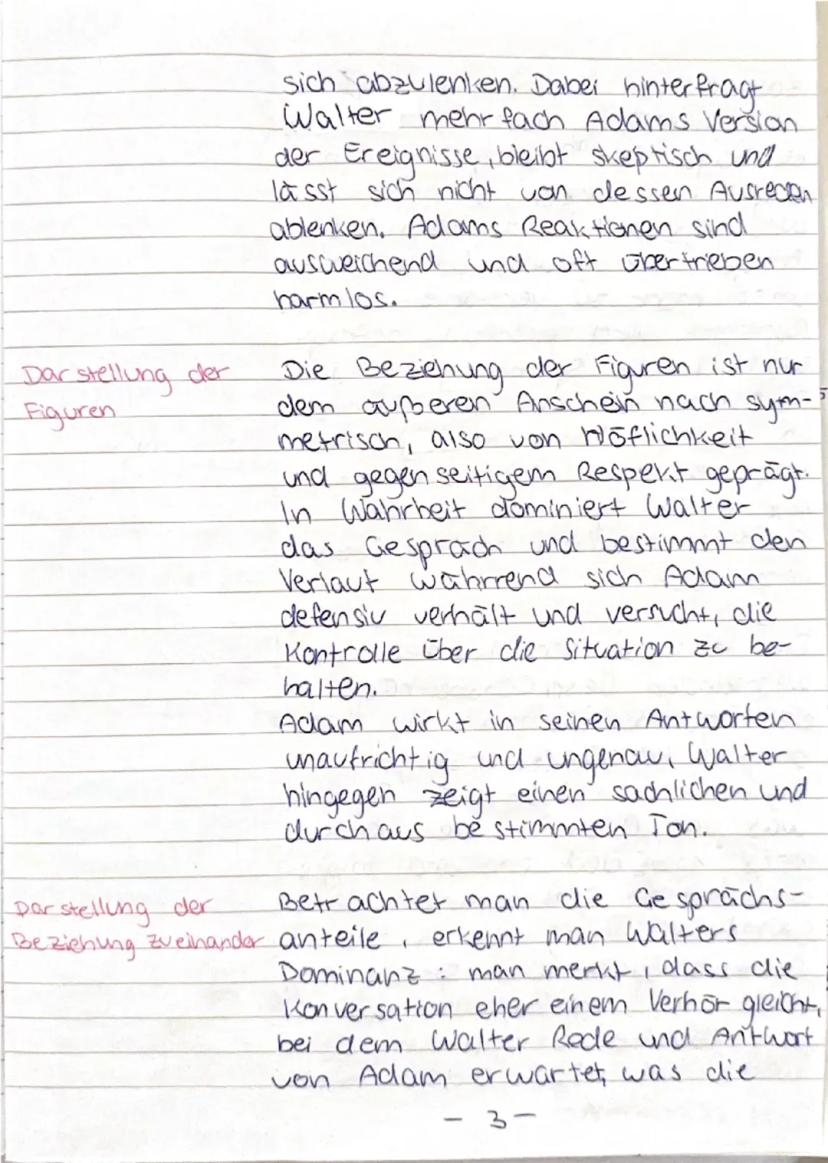 sich abzulenken. Dabei hinterfragt
Walter mehrfach Adams Version
der Ereignisse, bleibt skeptisch und
lässt sich nicht von dessen Ausreden
ablenken. Adams Reaktionen sind
ausweichend und oft übertrieben
harmlos.
Darstellung der
Figuren
Die Beziehung der Figuren ist nur
dem äußeren Anschein nach sym-
metrisch, also von Höflichkeit
und gegenseitigem Respekt geprägt.
In Wahrheit dominiert Walter
das Gespräch und bestimmt den
Verlauf währrend sich Adam
defensiv verhält und versucht, die
Kontrolle über die Situation zu be-
halten.
Adam wirkt in seinen Antworten
unaufrichtig und ungenau, Walter
hingegen zeigt einen sachlichen und
durchaus bestimmten Ton.
Darstellung der
Beziehung zueinander
Betrachtet man die Gesprächs-
anteile, erkennt man Walters
Dominanz: man merkt, dass die
Konversation eher einem Verhör gleicht,
bei dem Walter Rede und Antwort
von Adam erwartet, was die
- 3 -